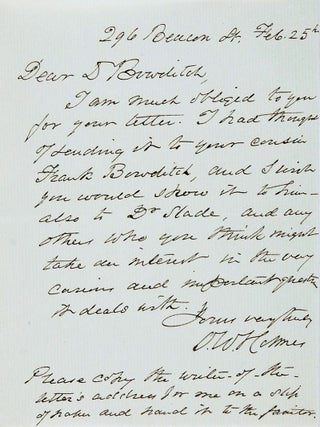 296 Beacon St. Feb. 25th
Dear Dr Bowditch,
I am much obliged to you
for your letter. I had thought
of sending it to your cousin
Frank Bowditch, and I wish
you would show it to him –
also to Dr Slade, and any
others who you think might
take an interest in the very
curious and important question
it deals with.
Yours very truly
O. W. Holmes
Please copy the writer-of-the-
letter's address for me on a slip
of paper and hand it to the janitor.